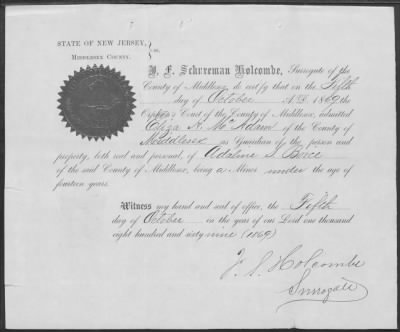 STATE OF NEW JERSEY,
MIDDLESEX COUNTY. } ss.
I, F. Schureman Holcombe, Surrogate of the
County of Middlesex, do certify that on the Fifth
day of October A.D. 1869 the
Orphans Court of the County of Middlesex, admitted
Eliza A. McAdam of the County of
Middlesex as Guardian of the person and
property, both real and personal, of Adaline S. Brice
of the said County of Middlesex, being a Minor under the age of
fourteen years.
Witness my hand and seal of office, the Fifth
day of October in the year of our Lord one thousand
eight hundred and sixty nine (1869)
F. S. Holcombe
Surrogate